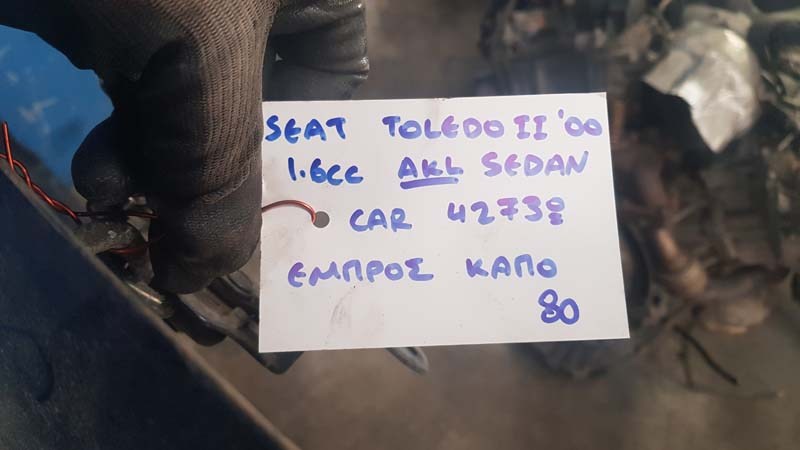 SEAT TOLEDO II '00
1.6cc AKL SEDAN
CAR 42730
ΕΜΠΡΟΣ ΚΑΠΟ
80